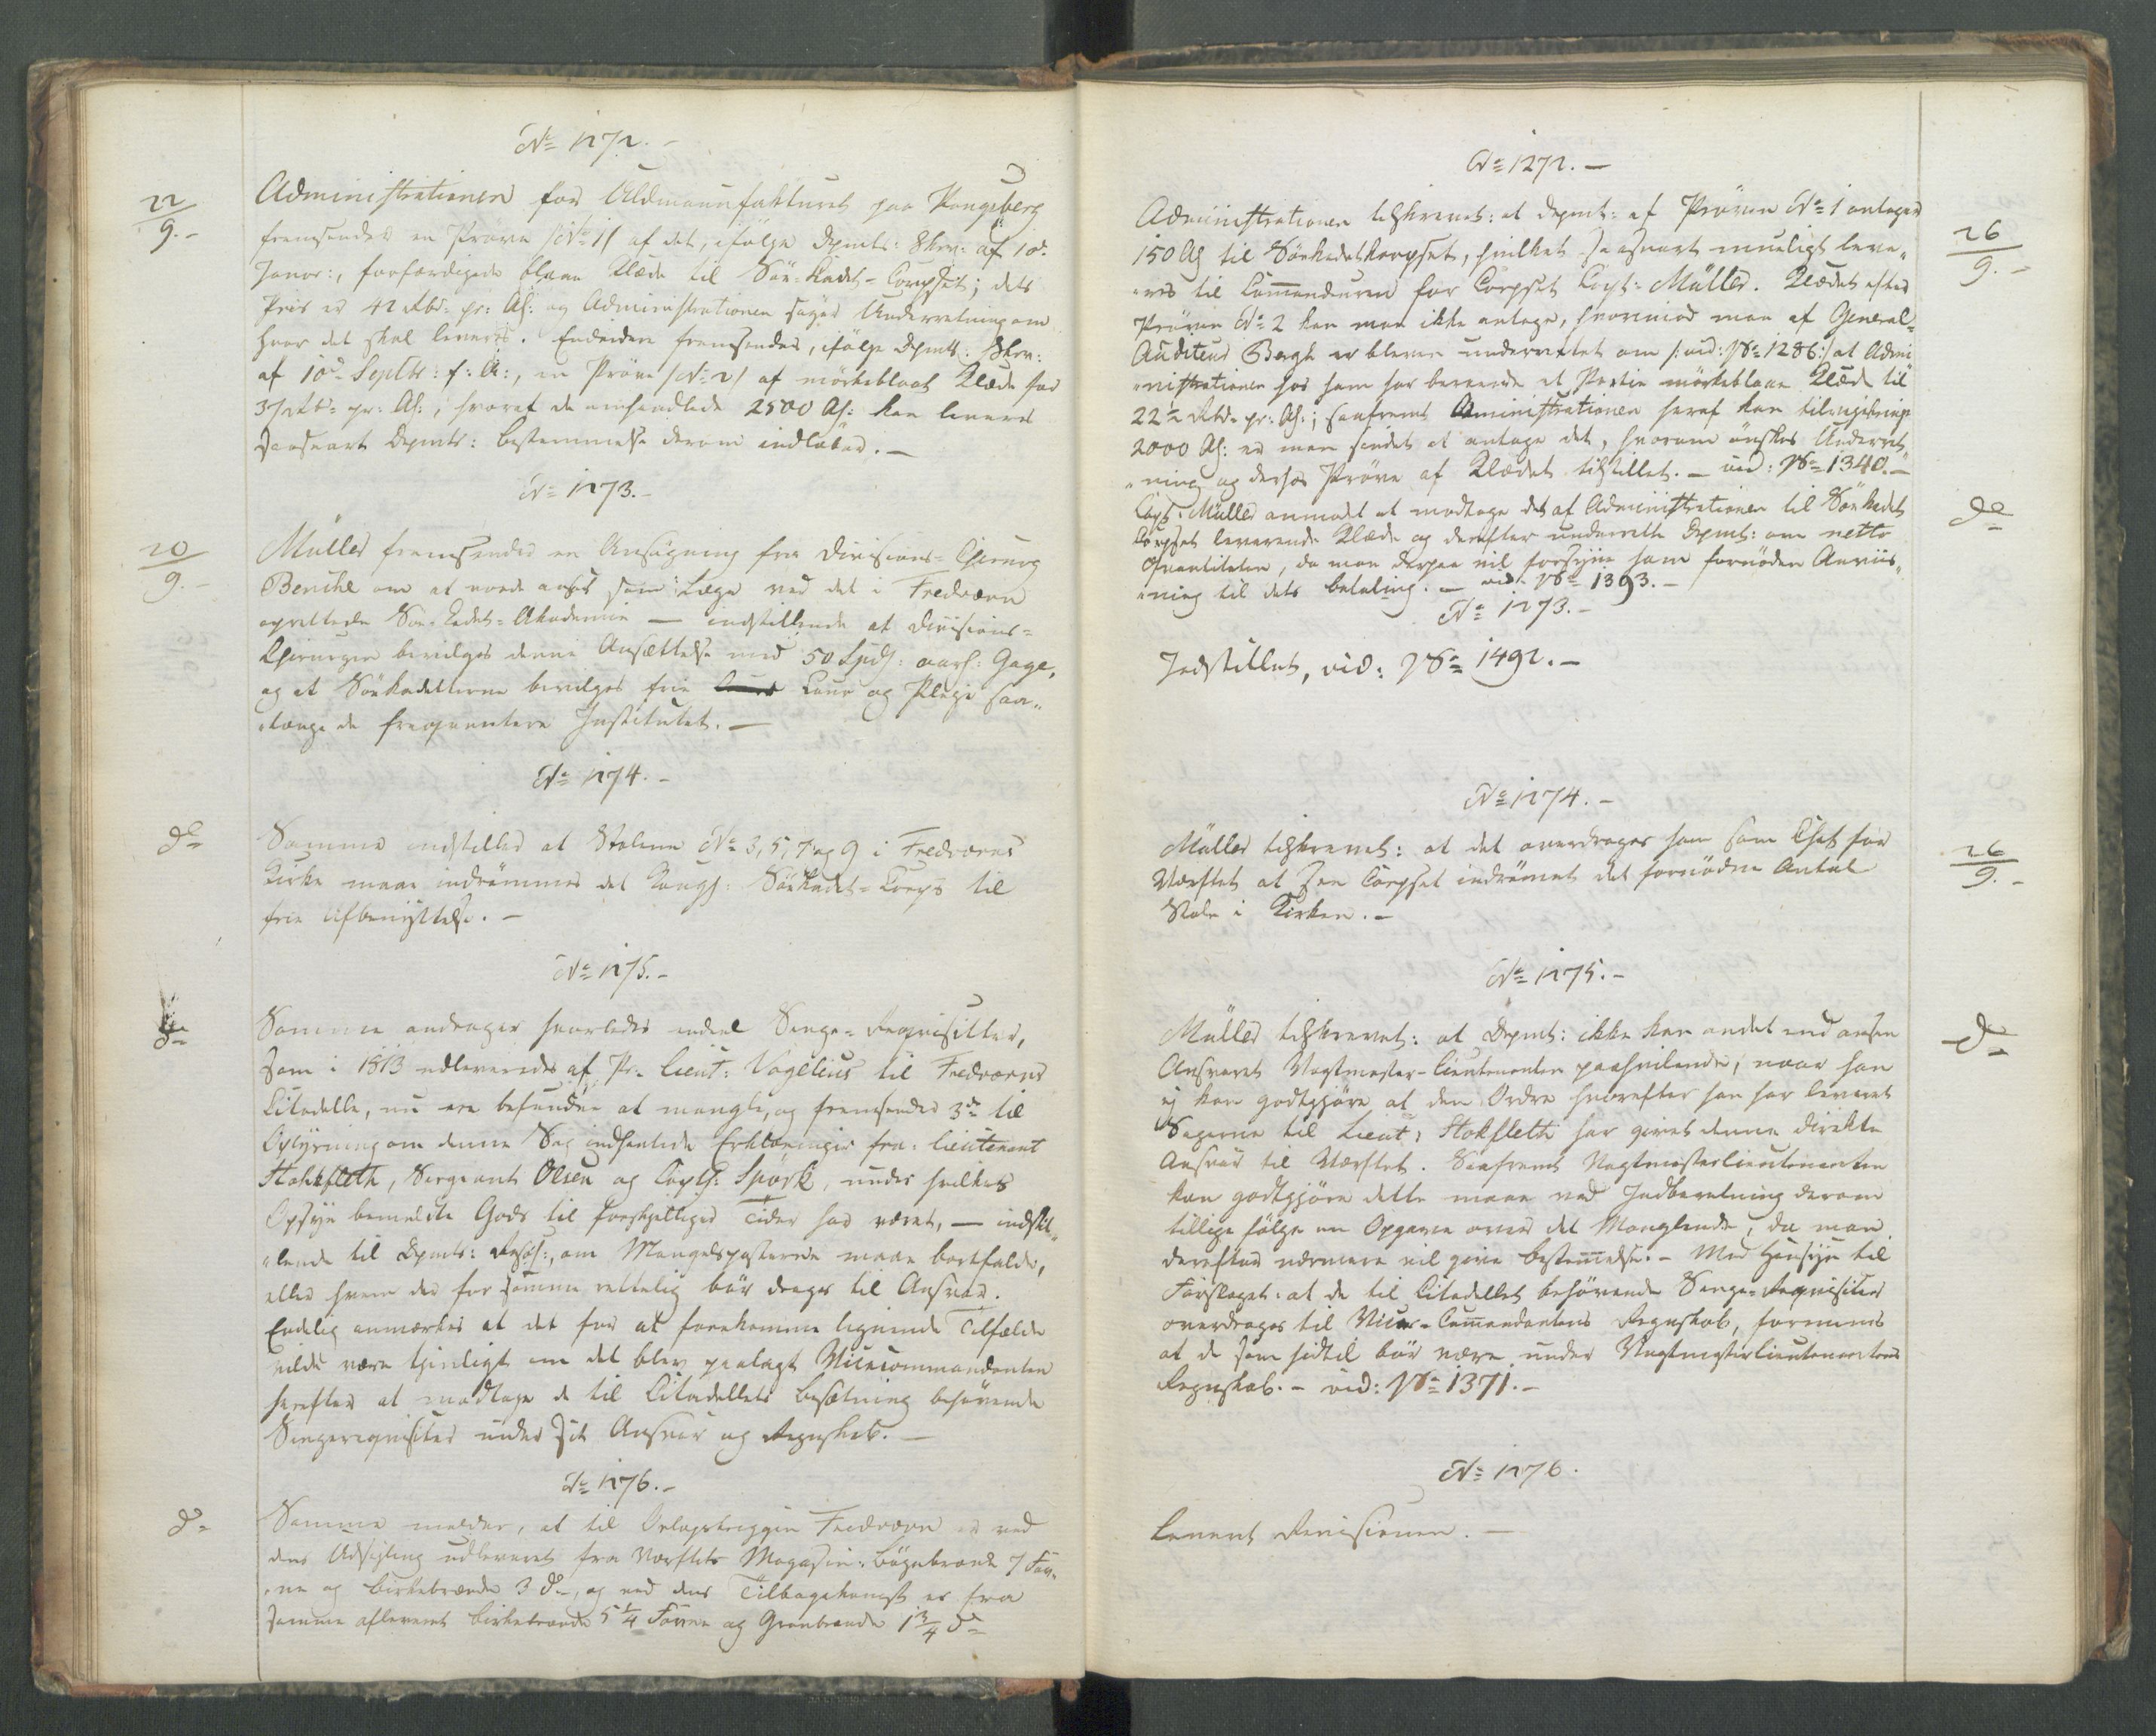 No 1272.-
22/9.-
Administrationen for Uldmanufakturet paa Kongsberg
fremsender en Prøve /:No 1:/ af det, ifølge Depmts: Skriv: af 10de
Janvr:, forfærdigede blaae Klæde til Søe-Kadet-Corpset; dets
Priis er 42 Rbd: pr: Al: og Administrationen søger Underretning om
hvor det skal leveres. Endvidere fremsendes, ifølge Depmts: Skriv:
af 10de Septbr: f: A:, en Prøve /:No 2:/ af mørkeblaat Klæde for
37 Rbd: pr: Al:, hvoraf de omhandlede 2500 Al: kan leveres
saasnart Depmts: bestemmelse derom indløber.-
No 1273.-
20/9.-
Müller fremsender en Ansøgning fra Divisions-Chirurg
Benche om at vorde ansat som Læge ved det i Fredværn
oprettede Søe-Kadet-Akademie - indstillende at Divisions-
Chirurgen bevilges denne Ansættelse med 50 Spd: aarl: Gage,
og at Søekadetterne bevilges frie Cuur og Pleje saa-
længe de freqventere Institutet.-
No 1274.-
do
Samme indstiller at Stolene No 3, 5, 7 og 9 i Fredværns
Kirke maae indrømmes det Kongl: Søekadet-Corps til
frie Afbenyttelse.-
No 1275.-
do
Samme andrager hvorledes endeel Senge-Reqvisitter,
som i 1813 udleveredes af Pr: Lieut: Vogelius til Fredværns
Citadelle, nu ere befundne at mangle, og fremsender 3de til
Oplysning om denne Sag indhentede Erklæringer fra: Lieutenant
Stokfleth, Sergeant Olsen og Capt: Spørk, under hvilkes
Opsyn bemeldte Gods til forskjellige Tider har været, - indstil-
lende til Depmts: Resol:, om Mangelsposterne maae bortfalde,
eller hvem der for samme rettelig bør drages til Ansvar.
Endelig anmærkes at det for at forekomme lignende Tilfælde
vilde være tjenligt om det blev paalagt Vicecommandanten
herefter at modtage de til Citadellets Besætning behøvende
Sengereqvisiter under sit Ansvar og Regnskab.-
No 1276.-
do
Samme melder, at til Orlogsbriggen Fredværn er ved
dens Udsejling udleveret fra Værftets Magasin: Bøgebrænde 7 Fav-
ne og Birkebrænde 3 do, og ved dens Tilbagekomst er fra
samme afleveret Birkebrænde 5 1/4 Favne og Granbrænde 1 3/4 do
No 1272.-
26/9.-
Administrationen tilskrevet: at Depmt: af Prøven No 1 antager
150 Al til Søekadetkorpset, hvilket saasnart mueligt leve-
res til Commandeuren for Corpset Capt: Müller. Klædet efter
Prøven No 2 kan man ikke antage, hvorimod man af General-
Auditeur Bergh er bleven underrettet om /:vid: No 1286:/ at Admi-
nistrationen hos ham har beroende et Partie mørkeblaae Klæde til
22 Rbd: pr: Al:; saafremt Administrationen heraf kan tilvejebringe
2000 Al: er man sindet at antage det, hvorom ønskes Underret-
ning og derhos Prøve af Klædet tilstillet.- vid: No 1340.-
do
Capt: Müller anmodet at modtage det af Administrationen til Søekadet
Corpset leverende Klæde og derefter underrette Depmt: om netto
Qvantiteten, da man derpaa vil forsyne ham fornøden Anviis-
ning til dets betaling.- vid: No 1393.-
No 1273.-
Indstillet, vid: No 1492.-
No 1274.-
26/9.-
Müller tilskrevet: at det overdrages ham som Chef for
Værftet at see Corpset indrømet det fornødne Antal
Stole i Kirken.-
No 1275.-
do
Müller tilskrevet: at Depmt: ikke kan andet end ansee
Ansvaret Vagtmester-Lieutenanten paahvilende, naar han
ej kan godtgjøre at den Ordre hvorefter han har leveret
Sagerne til Lieut: Stokfleth har givet denne direkte
Ansvar til Værftet. Saafremt Vagtmesterlieutenanten
kan godtgjøre dette maae ved Indberetning derom
tillige følge en Opgave over det Manglende, da man
derefter nærmere vil give bestemelse.- Med Hensyn til
Forslaget: at de til Citadellet behøvende Senge-Reqvisiter
overdrages til Vice-Comandantens Regnskab, formenes
at de som hidtil bør være under Vagtmesterlieutenantens
Regnskab.- vid: No 1371.-
No 1276.
Leveret Revisionen.-